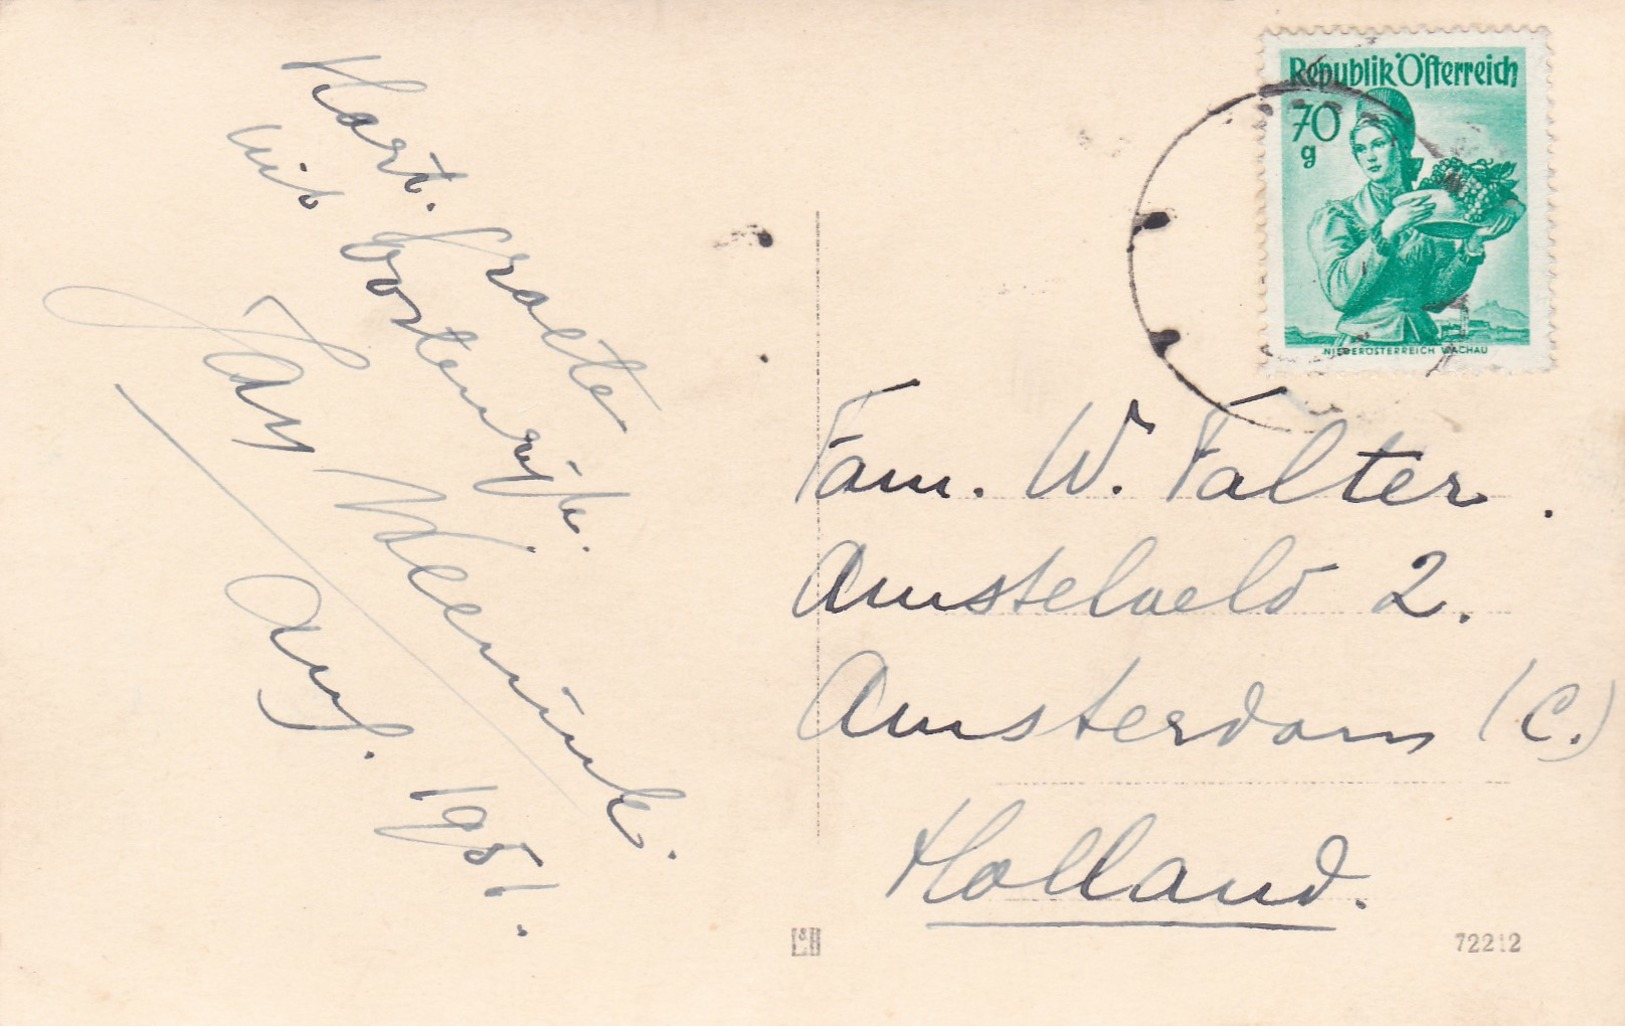 Hart. groeten
uit Oostenrijk.
Aug. 1951.
Republik Österreich
70
g
NIEDERÖSTERREICH WACHAU
Fam. W. Falter.
Amstelveld 2.
Amsterdam (C.)
Holland.
72212